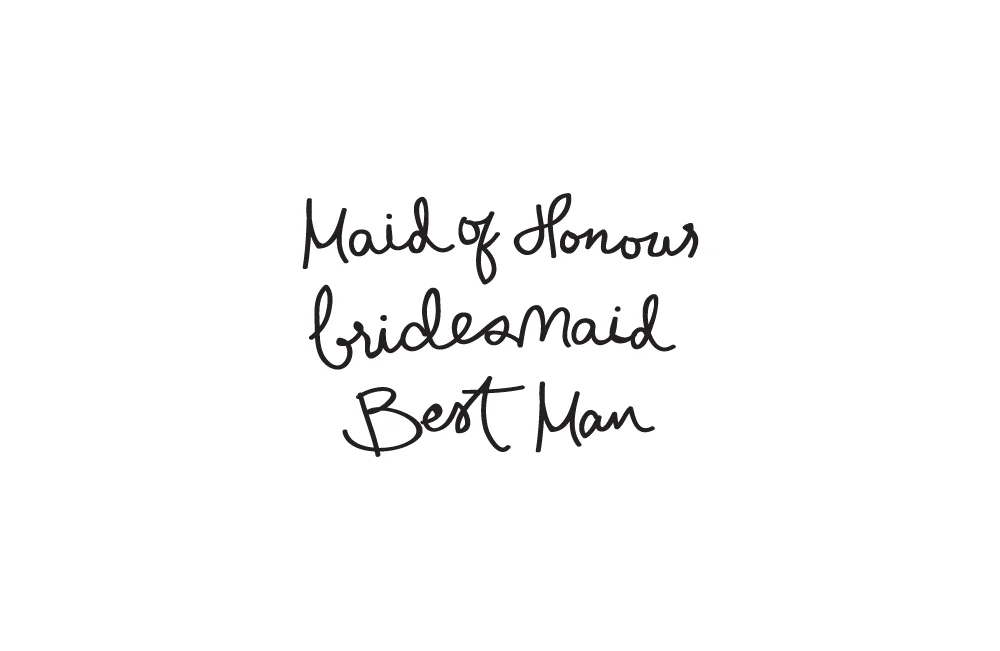 Maid of Honour
bridesmaid
Best Man